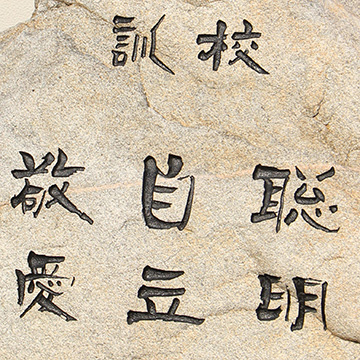 校訓
聡明
自立
敬愛